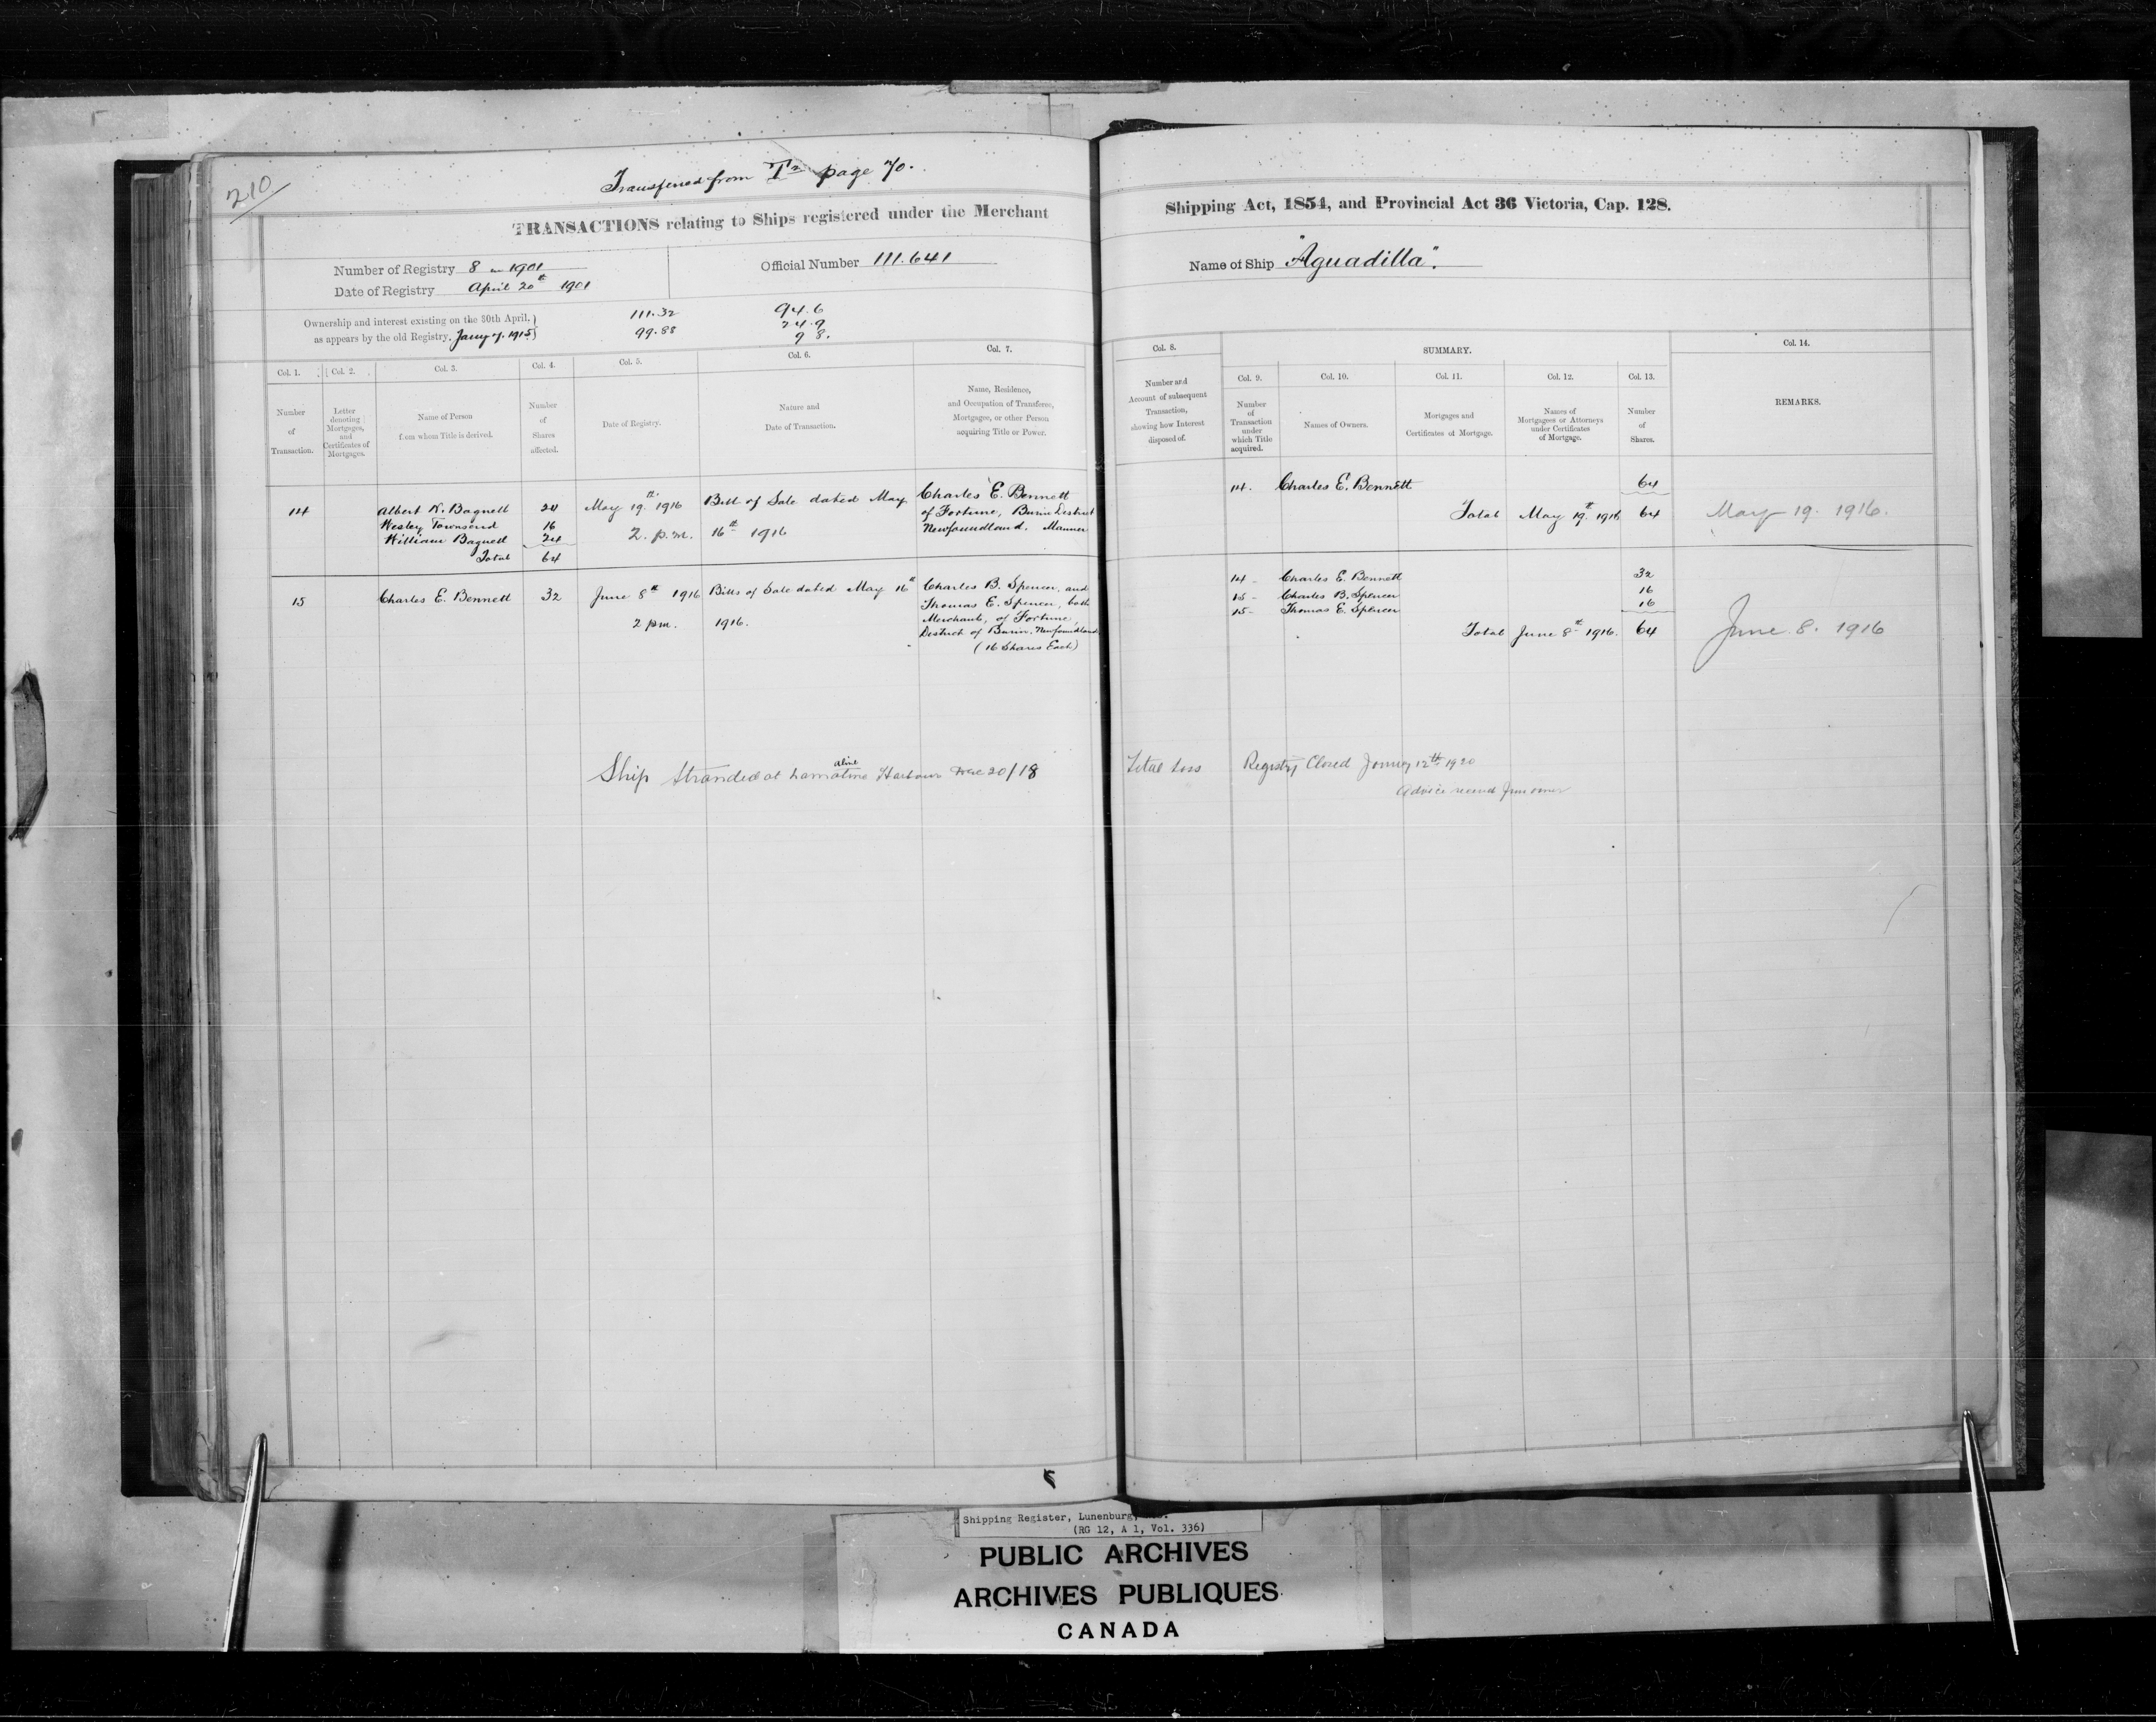 210
Transferred from page 70.
TRANSACTIONS relating to Ships registered under the Merchant
Number of Registry 8 in 1901
Date of Registry April 20th 1901
Official Number 111.641
Ownership and interest existing on the 30th April,
as appears by the old Registry. 1915
111.32
99.88
94.6
24.9
9 8.
Col. 1.
Col. 2.
Col. 3.
Col. 4.
Col. 5.
Col. 6.
Col. 7.
Number
of
Transaction.
Letter
denoting
Mortgages,
and
Certificates of
Mortgages.
Name of Person
from whom Title is derived.
Number
of
Shares
affected.
Date of Registry.
Nature and
Date of Transaction.
Name, Residence,
and Occupation of Transferee,
Mortgagee, or other Person
acquiring Title or Power.
14
Albert K. Bagnell 24
Wesley Townsend 16
William Bagnell 24
Total 64
May 19th 1916
2. p.m.
Bill of Sale dated May
16th 1916
Charles E. Bennett
of Fortune, Burin District
Newfoundland.
15
Charles E. Bennett
32
June 8th 1916
2 pm.
Bills of Sale dated May 16th
1916.
Charles B. Spencer, and
Thomas E. Spencer, both
Merchants, of Fortune,
District of Burin, Newfoundland
(16 Shares Each)
Ship stranded at Harbour Dec 20/18
Shipping Act, 1854, and Provincial Act 36 Victoria, Cap. 128.
Name of Ship "Aguadilla".
Col. 8.
SUMMARY.
Col. 14.
Number and
Account of subsequent
Transaction,
showing how Interest
disposed of.
Col. 9.
Col. 10.
Col. 11.
Col. 12.
Col. 13.
Number
of
Transaction
under
which Title
acquired.
Names of Owners.
Mortgages and
Certificates of Mortgage.
Names of
Mortgagees or Attorneys
under Certificates
of Mortgage.
Number
of
Shares.
REMARKS.
14. Charles E. Bennett 64
Total May 19th 1916 64
May 19. 1916.
14 - Charles E. Bennett 32
15 - Charles B. Spencer 16
15 - Thomas E. Spencer 16
Total June 8th 1916. 64
June 8. 1916
Total Loss Registry Closed 12th 1920
Advice received from owner
Shipping Register, Lunenburg,
(RG 12, A 1, Vol. 336)
PUBLIC ARCHIVES
ARCHIVES PUBLIQUES
CANADA